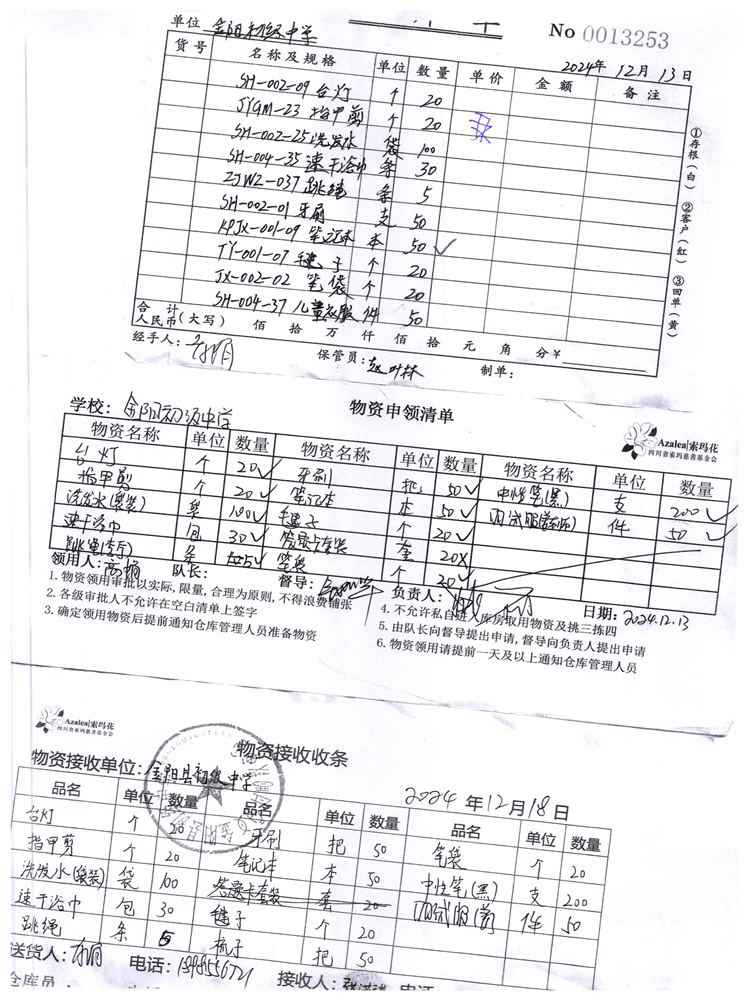 单位 金阳初级中学 No 0013253
2024年12月13日
货号 名称及规格 单位 数量 单价 金额 备注
SH-002-09 台灯 个 20
JYGM-23 指甲剪 个 20
SH-002-25 洗发水 袋 100
SH-004-35 速干浴巾 条 30
ZJWZ-037 跳绳 条 5
SH-002-01 牙刷 支 50
KPJX-001-09 笔记本 本 50 ✓
TY-001-07 毽子 个 20
JX-002-02 笔袋 个 20
SH-004-37 儿童衣服 件 50
合计
人民币(大写) 佰 拾 万 仟 佰 拾 元 角 分 ¥
经手人: 保管员: 制单:
①存根(白) ②客户(红) ③回单(黄)
物资申领清单
学校: 金阳初级中学
Azalea|索玛花
四川省索玛慈善基金会
物资名称 单位 数量 物资名称 单位 数量 物资名称 单位 数量
台灯 个 20✓ 牙刷 把 50✓ 中性笔(黑) 支 200✓
指甲剪 个 20✓ 笔记本 本 50✓ 件 50✓
洗发水(袋装) 袋 100✓ 毽子 个 20✓
速干浴巾 包 30✓ 答题卡套装 套 20X
跳绳 条 5✓ 笔袋 个 20✓
领用人: 队长: 督导: 负责人: 日期: 2024.12.13
1. 物资领用审批以实际, 限量, 合理为原则, 不得浪费铺张
2. 各级审批人不允许在空白清单上签字
3. 确定领用物资后提前通知仓库管理人员准备物资
4. 不允许私自进入库房取用物资及挑三拣四
5. 由队长向督导提出申请, 督导向负责人提出申请
6. 物资领用请提前一天及以上通知仓库管理人员
Azalea|索玛花
四川省索玛慈善基金会
物资接收收条
物资接收单位: 金阳县初级中学 2024年12月18日
品名 单位 数量 品名 单位 数量 品名 单位 数量
台灯 个 20 牙刷 把 50 笔袋 个 20
指甲剪 个 20 笔记本 本 50 中性笔(黑) 支 200
洗发水(袋装) 袋 100 答题卡套装 套 20 件 50
速干浴巾 包 30 毽子 个 20
跳绳 条 5 梳子 把 50
送货人: 电话: 接收人: 电话
仓库员